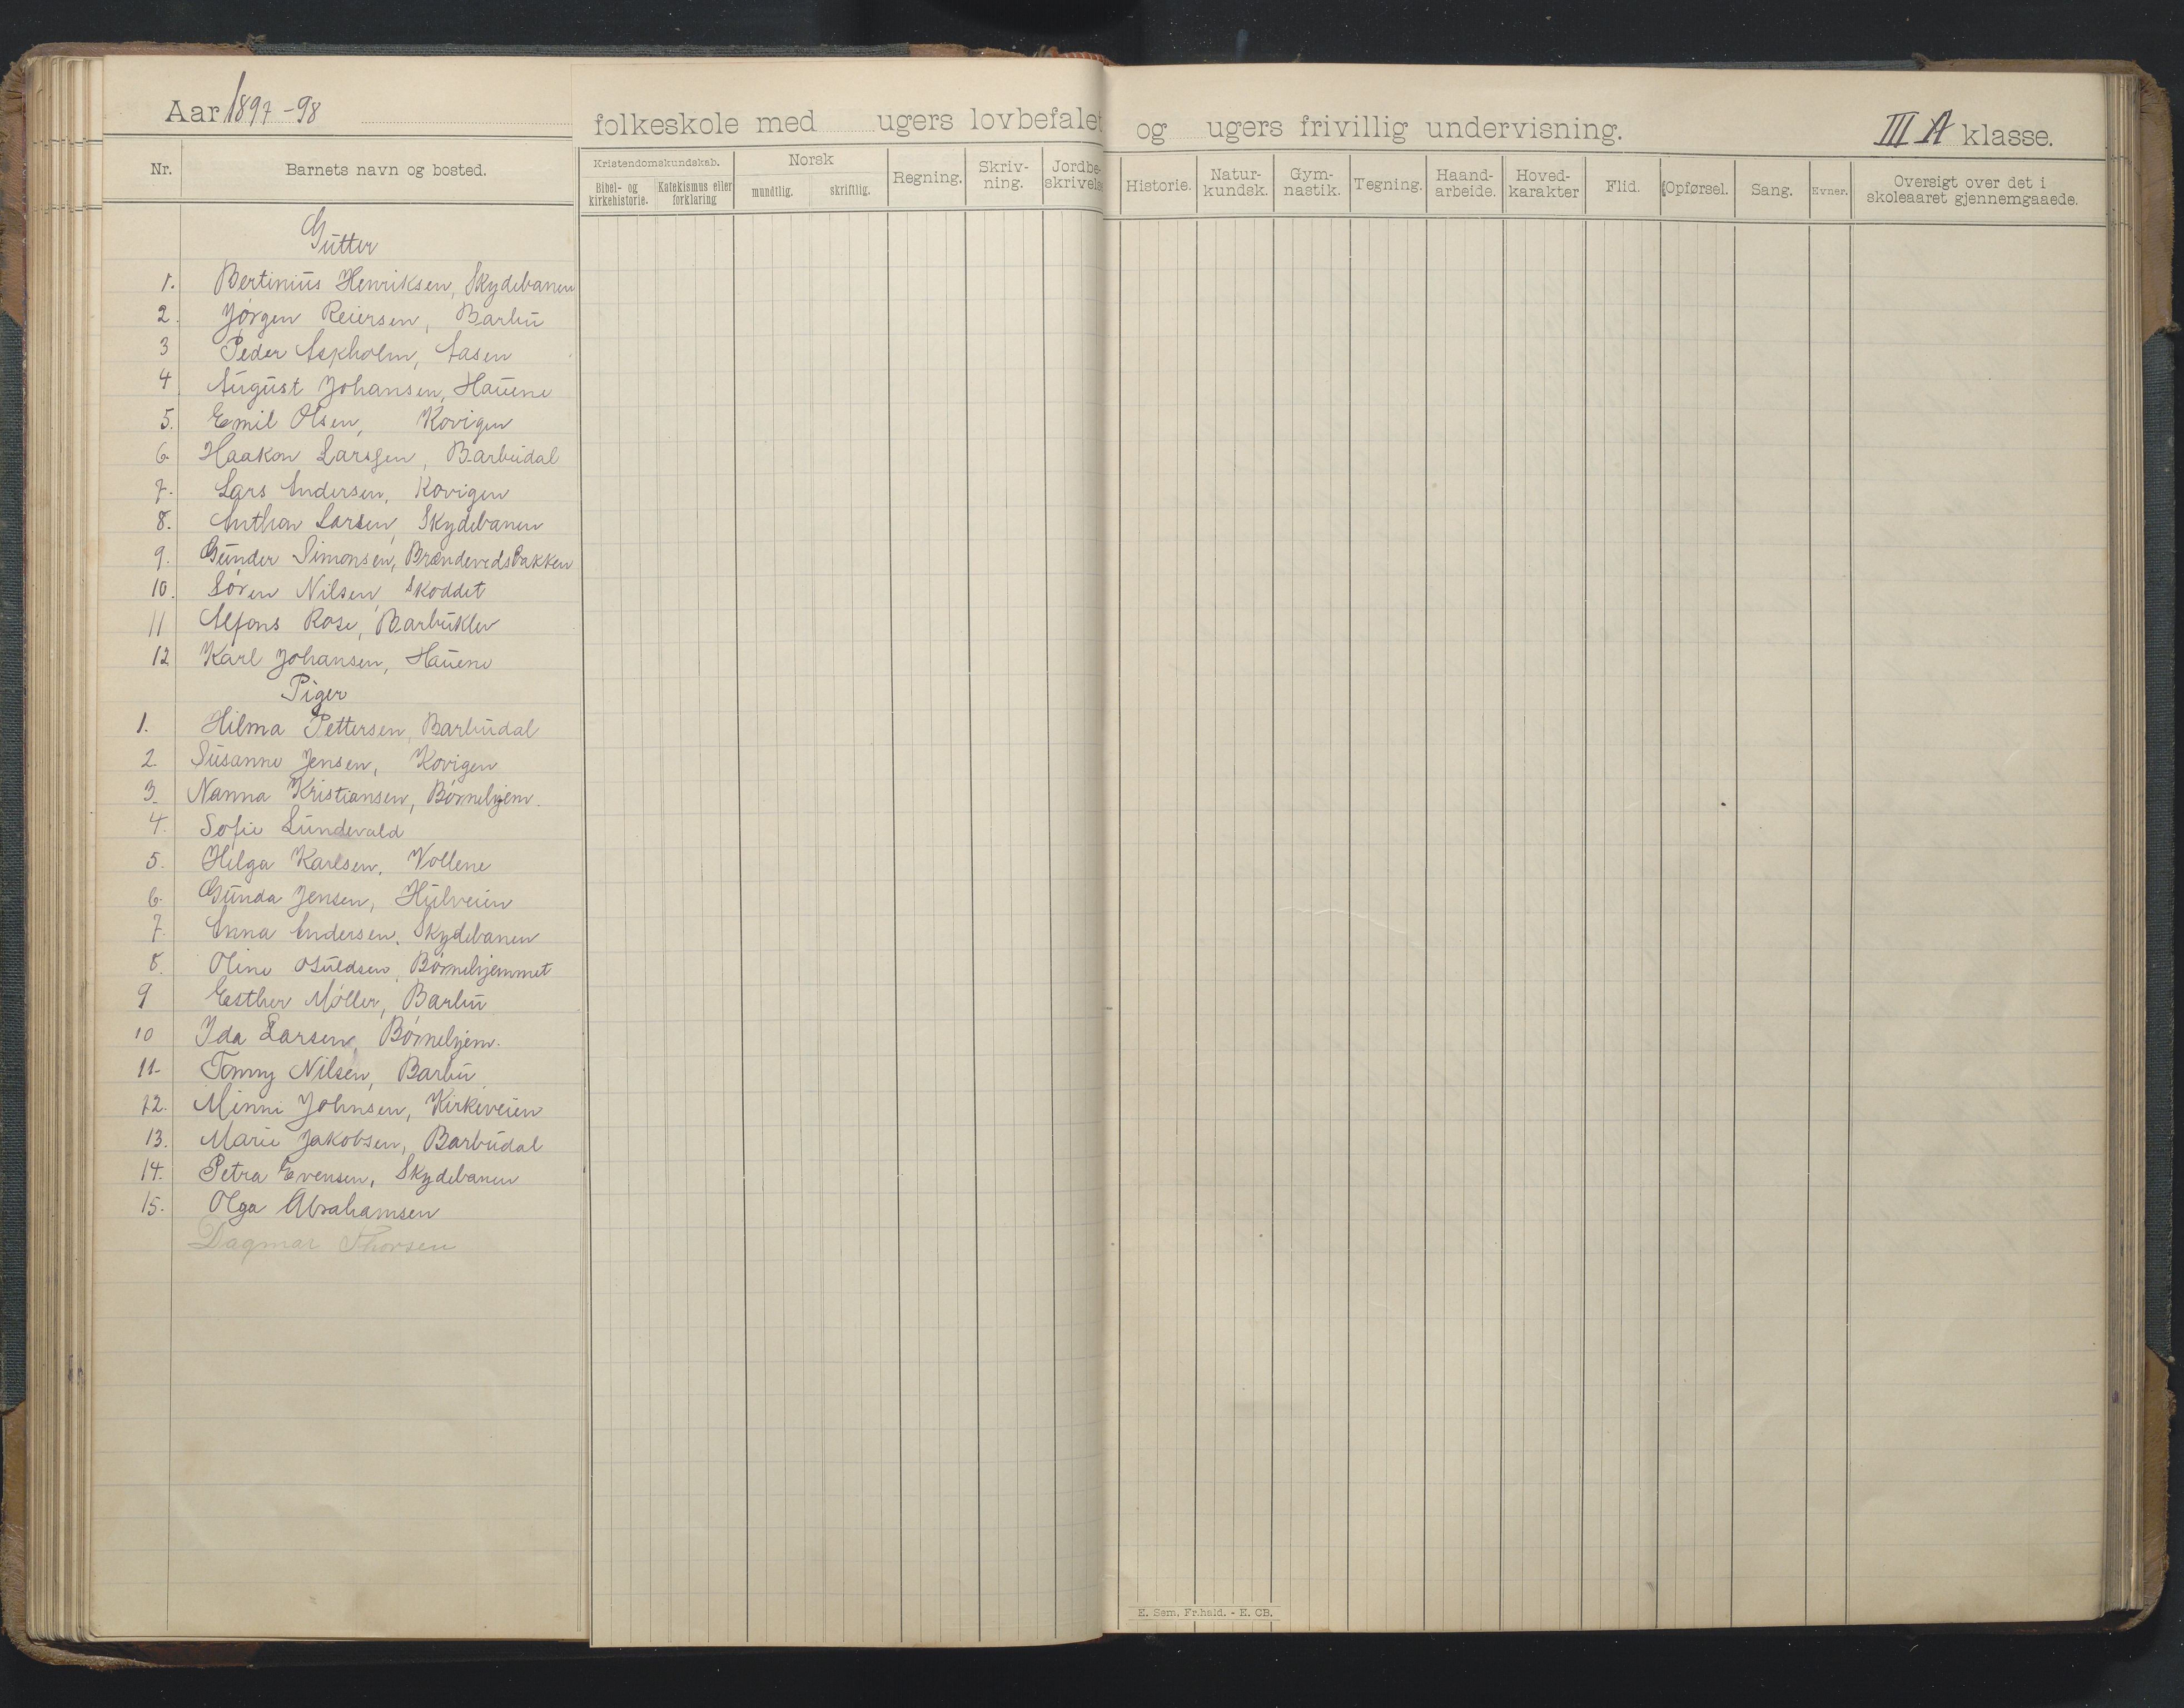 Aar 1897-98
folkeskole med ugers lovbefalet og ugers frivillig undervisning.
III A klasse.
Nr.
Barnets navn og bosted.
Kristendomskundskab.
Bibel- og kirkehistorie.
Katekismus eller forklaring
Norsk
mundtlig.
skriftlig.
Regning.
Skriv-
ning.
Jordbe-
skrivelse
Historie.
Natur-
kundsk.
Gym-
nastik.
Tegning.
Haand-
arbeide.
Hoved-
karakter
Flid.
Opførsel.
Sang.
Evner.
Oversigt over det i
skoleaaret gjennemgaaede.
Gutter
1. Bertinius Henriksen, Skydebanen
2. Jørgen Reiersen, Barbu
3 Peder Askholm, Aasen
4 August Johansen, Hauene
5. Emil Olsen, Kovigen
6. Haakon Larsen, Barbudal
7. Lars Andersen, Kovigen
8. Anthon Larsen, Skydebanen
9. Gunder Simonsen, Brændevedsbakken
10. Søren Nilsen, Skoddet
11 Alfons Rose, Barbuklev
12 Karl Johansen, Hauene
Piger
1. Hilma Pettersen, Barbudal
2. Susanne Jensen, Kovigen
3. Nanna Kristiansen, Børnehjem.
4. Sofie Lundevald
5. Helga Karlsen, Vollene
6. Gunda Jensen, Hulveien
7. Anna Andersen, Skydebanen
8. Oline Osuldsen, Børnehjemmet
9 Esther Møller, Barbu
10 Ida Larsen, Børnehjem.
11. Tomny Nilsen, Barbu
12. Minni Johnsen, Kirkeveien
13. Marie Jakobsen, Barbudal
14. Petra Evensen, Skydebanen
15. Olga Abrahamsen
Dagmar Thorsen
E. Sem, Fr.hald. - E. CB.